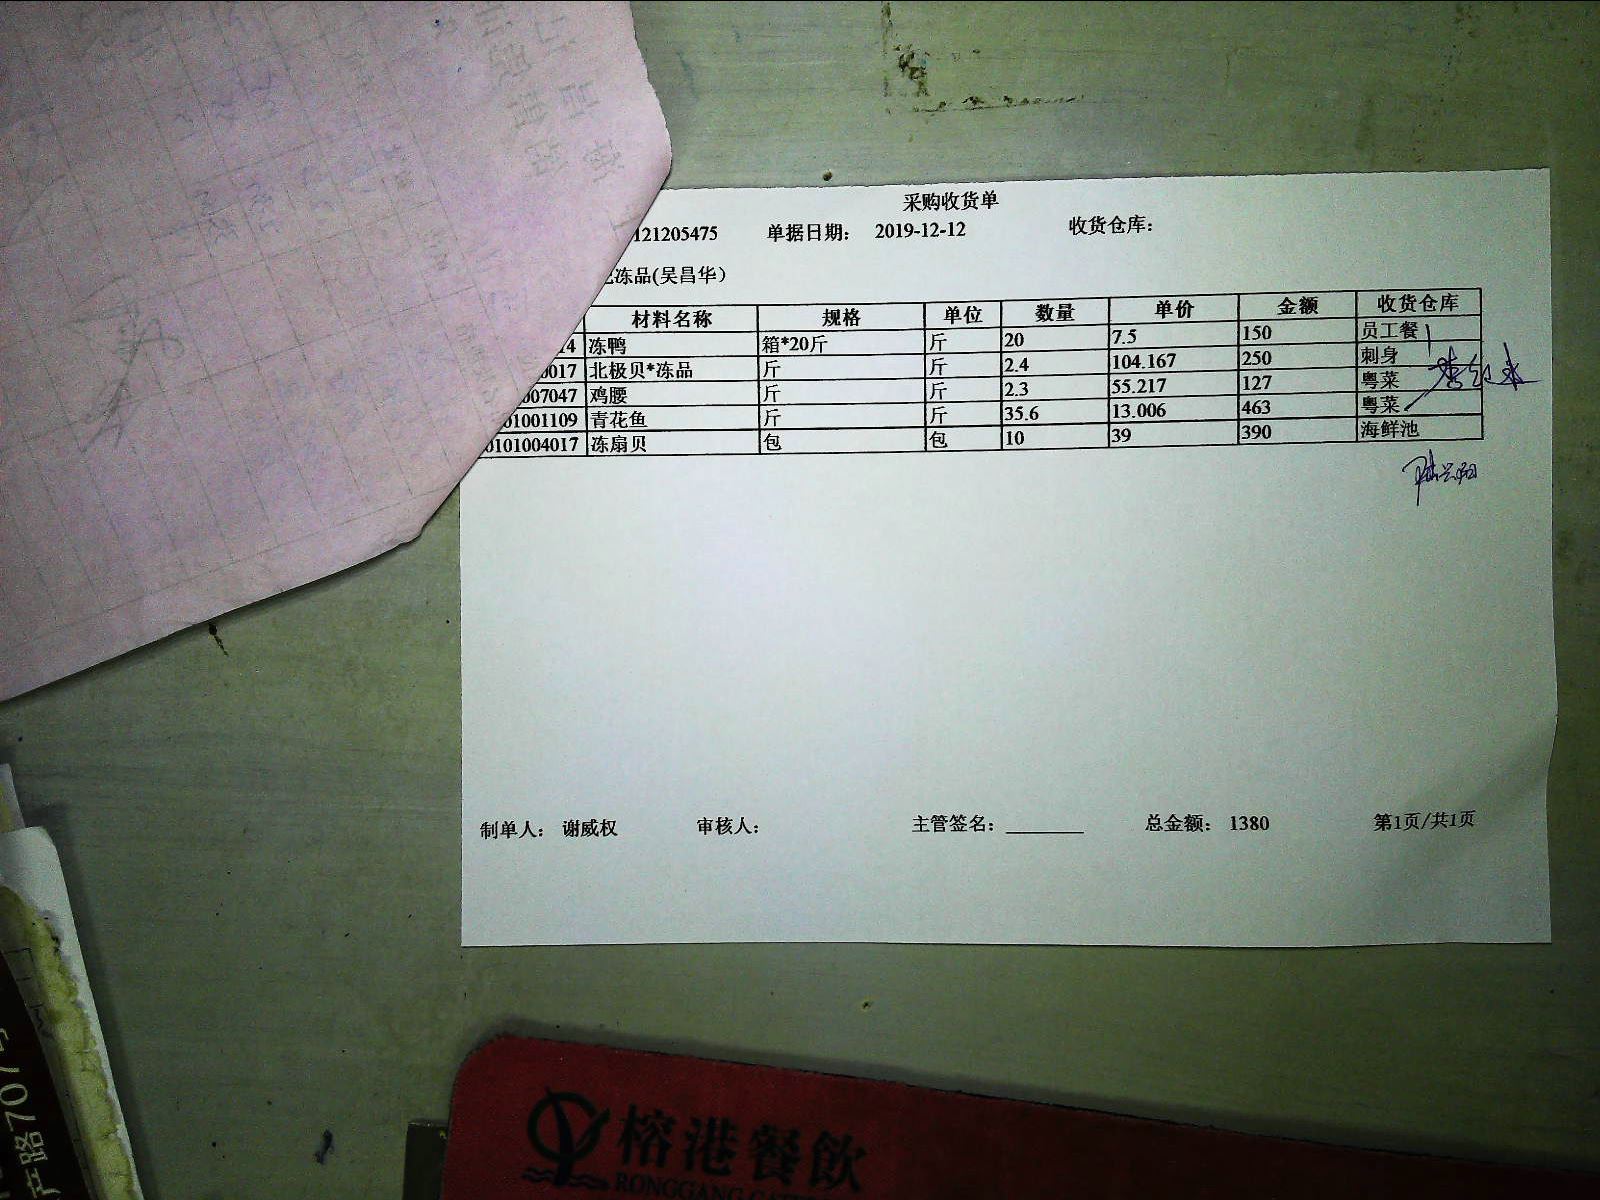 采购收货单
121205475 单据日期： 2019-12-12 收货仓库：
冻品(吴昌华)
材料名称 规格 单位 数量 单价 金额 收货仓库
14 冻鸭 箱*20斤 斤 20 7.5 150 员工餐
0017 北极贝*冻品 斤 斤 2.4 104.167 250 刺身
007047 鸡腰 斤 斤 2.3 55.217 127 粤菜
01001109 青花鱼 斤 斤 35.6 13.006 463 粤菜
0101004017 冻扇贝 包 包 10 39 390 海鲜池
制单人： 谢威权 审核人： 主管签名：________ 总金额： 1380 第1页/共1页
榕港餐飲
RONGGANG
产路707号